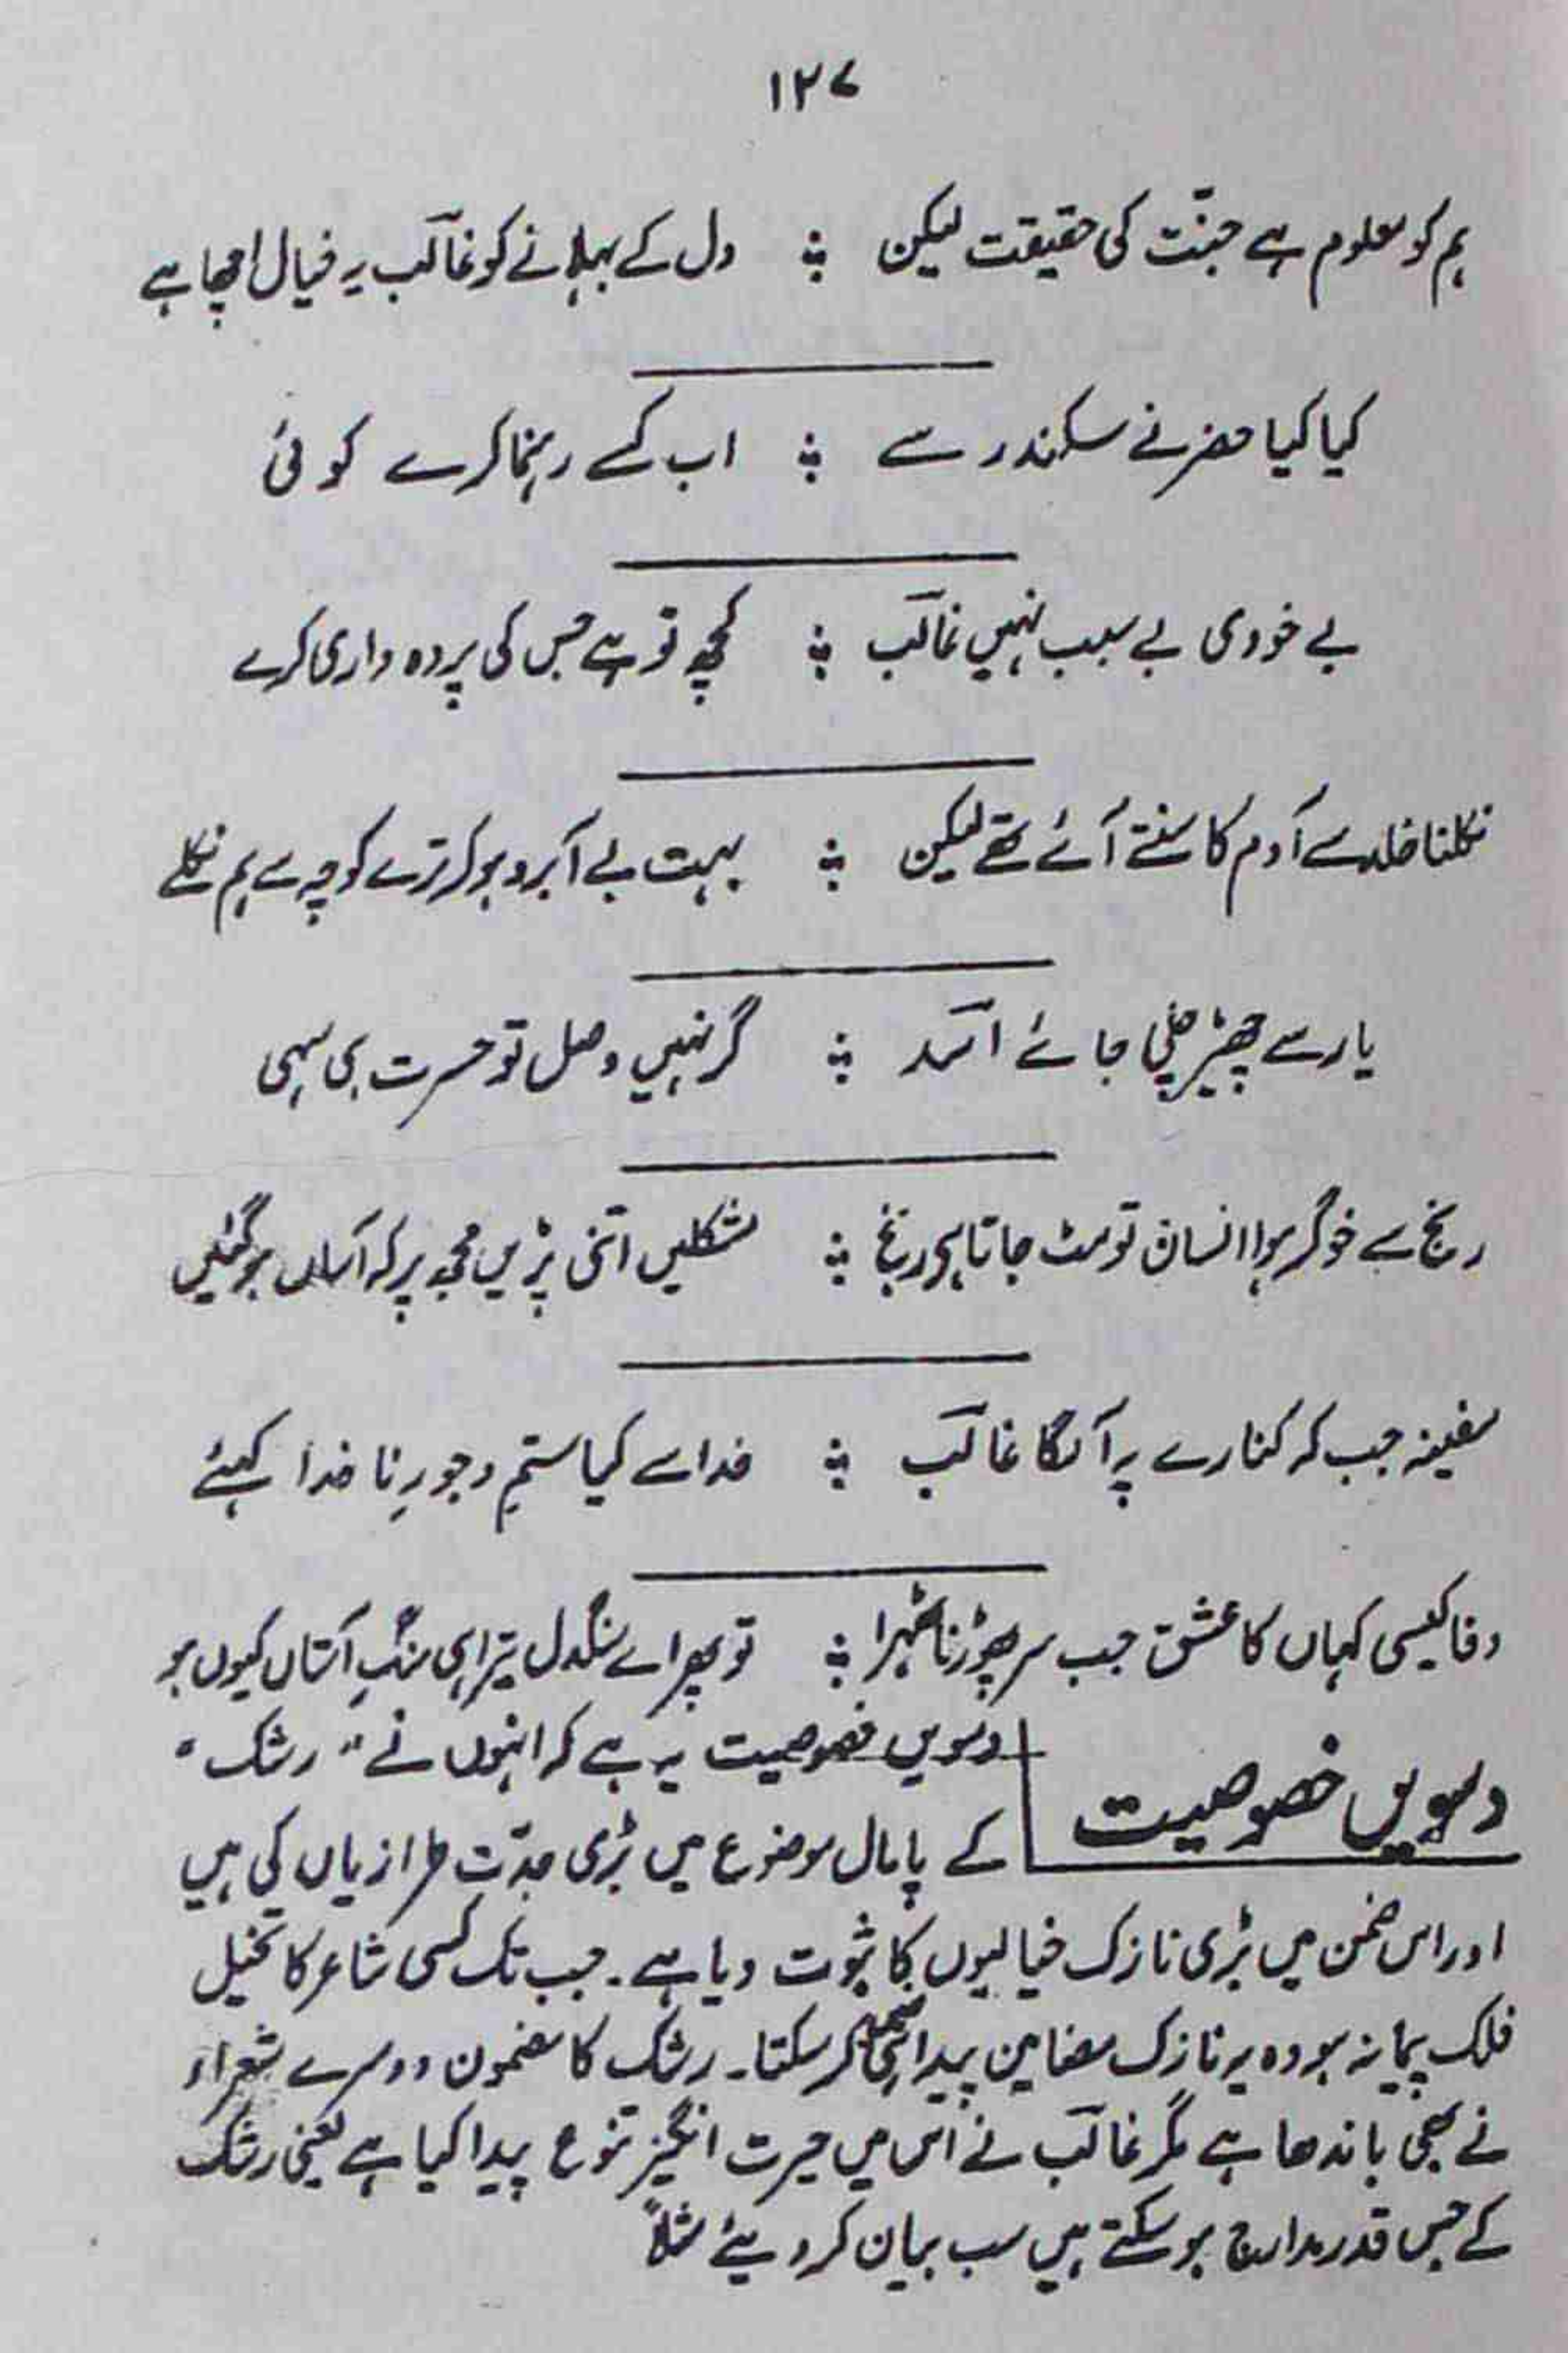 ۱۲۷
ہم کو معلوم ہے جنّت کی حقیقت لیکن ؞ دل کے بہلانے کو غالب یہ خیال اچھا ہے
کیا کیا خضر نے سکندر سے ؞ اب کسے رہنما کرے کوئی
بے خودی بے سبب نہیں غالب ؞ کچھ تو ہے جس کی پردہ داری کرے
نکلنا خلد سے آدم کا سنتے آئے تھے لیکن ؞ بہت بے آبرو ہو کر ترے کوچہ سے ہم نکلے
یار سے چھیڑ چلی جائے اسد ؞ گر نہیں وصل تو حسرت ہی سہی
رنج سے خوگر ہوا انسان تو مٹ جاتا ہے رنج ؞ مشکلیں اتنی پڑیں مجھ پر کہ آساں ہو گئیں
سفینہ جب کہ کنارے پہ آلگا غالب ؞ خدا سے کیا ستم و جورِ نا خدا کہئے
وفا کیسی کہاں کا عشق جب سر پھوڑنا ٹھہرا ؞ تو پھر اے سنگدل تیرا ہی سنگِ آستاں کیوں ہو
دسویں خصوصیت
دسویں خصوصیت یہ ہے کہ انہوں نے "رشک"
کے پامال موضوع میں بڑی جدّت طرازیاں کی ہیں
اور اس ضمن میں بڑی نازک خیالیوں کا ثبوت دیا ہے۔ جب تک کسی شاعر کا تخیل
فلک پیما نہ ہو وہ یہ نازک مضامین پیدا نہیں کر سکتا۔ رشک کا مضمون دوسرے شعراء
نے بھی باندھا ہے مگر غالب نے اس میں حیرت انگیز تنوع پیدا کیا ہے یعنی رشک
کے جس قدر مدارج ہو سکتے ہیں سب بیان کر دیئے مثلاً